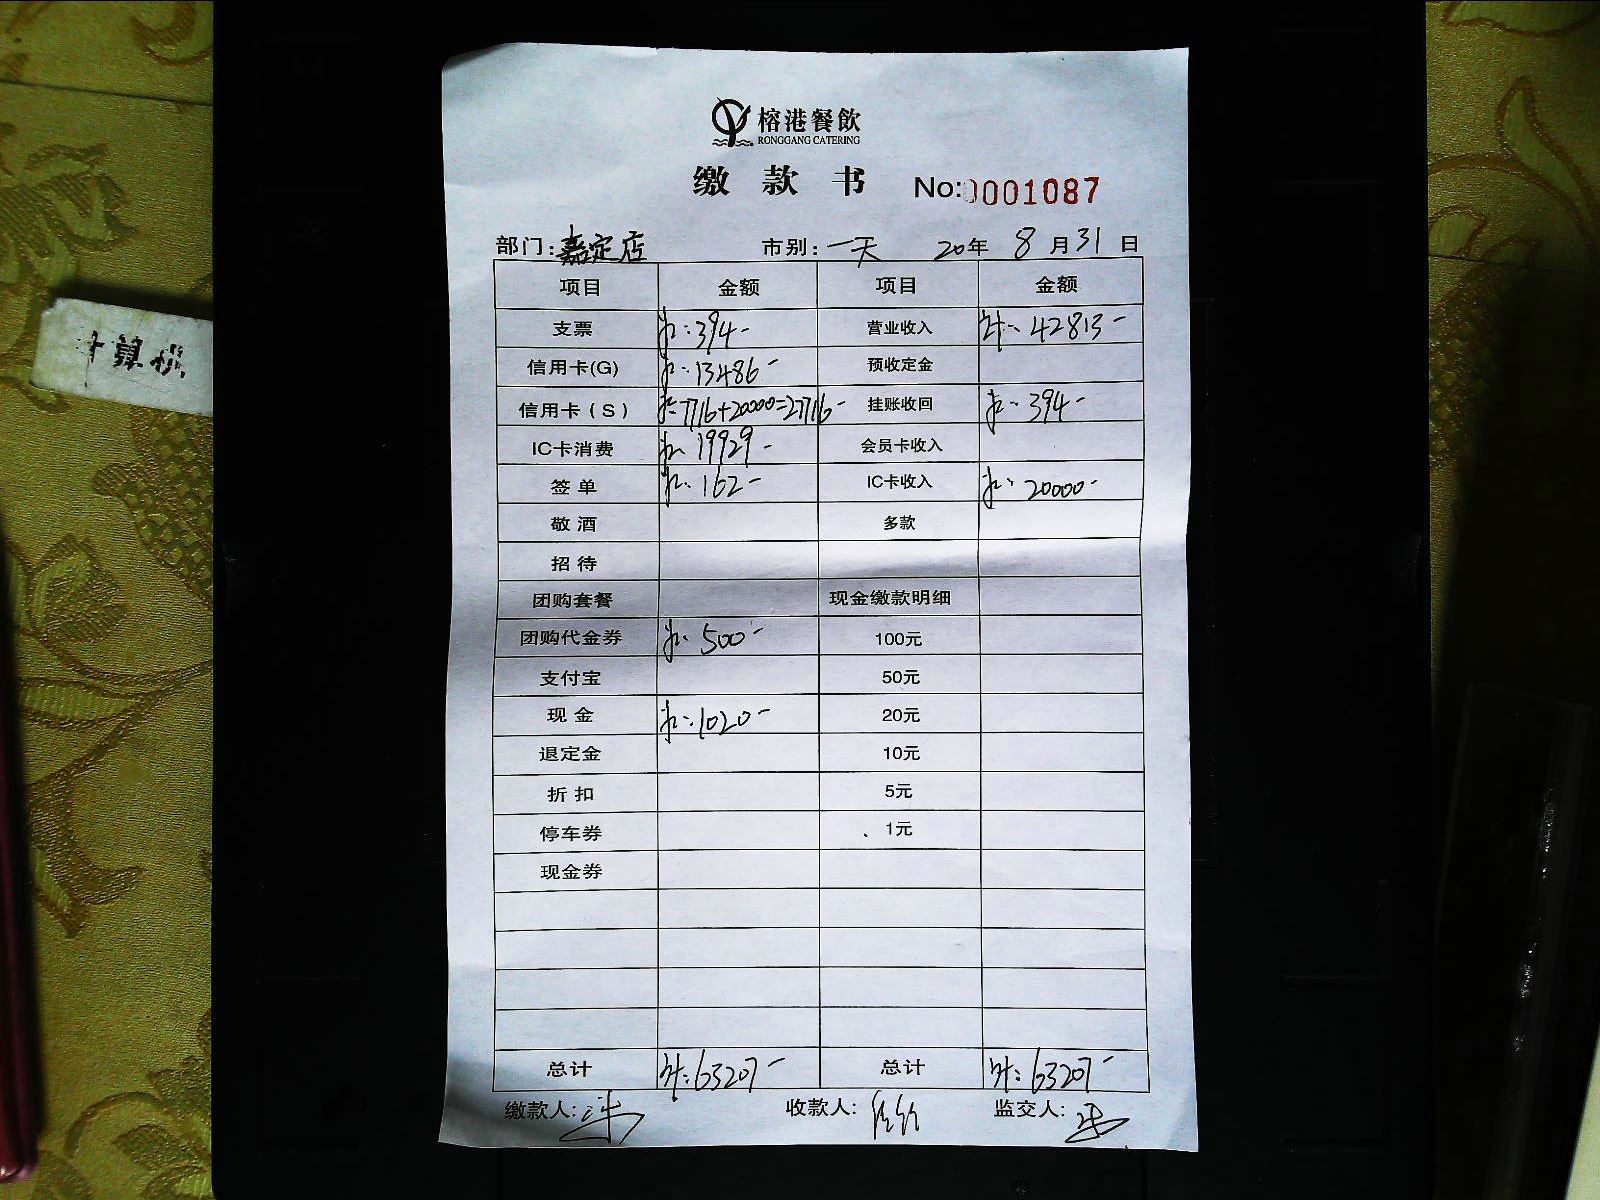 榕港餐飲
RONGGANG CATERING
缴款书 No:0001087
部门:嘉定店 市别:一天 20年8月31日
项目 金额 项目 金额
支票 394- 营业收入 计:42813-
信用卡(G) 13486- 预收定金
信用卡(S) 7716+20000=27716- 挂账收回 394-
IC卡消费 19929- 会员卡收入
签单 162- IC卡收入 20000-
敬酒 多款
招待
团购套餐 现金缴款明细
团购代金券 500- 100元
支付宝 50元
现金 1020- 20元
退定金 10元
折扣 5元
停车券 1元
现金券
总计 计:63207- 总计 计:63207-
缴款人: 收款人: 监交人:
计算机